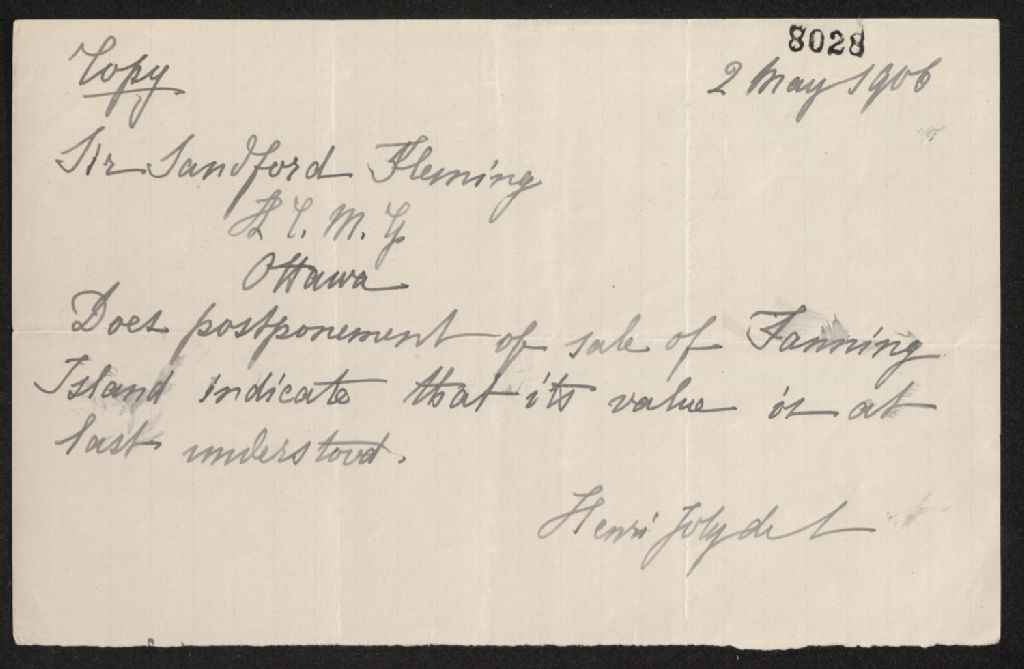 8028
Copy
2 May 1906
Sir Sandford Fleming
K C. M. G.
Ottawa
Does postponement of sale of Fanning
Island indicate that its value is at
last understood.
Henri Joly de L